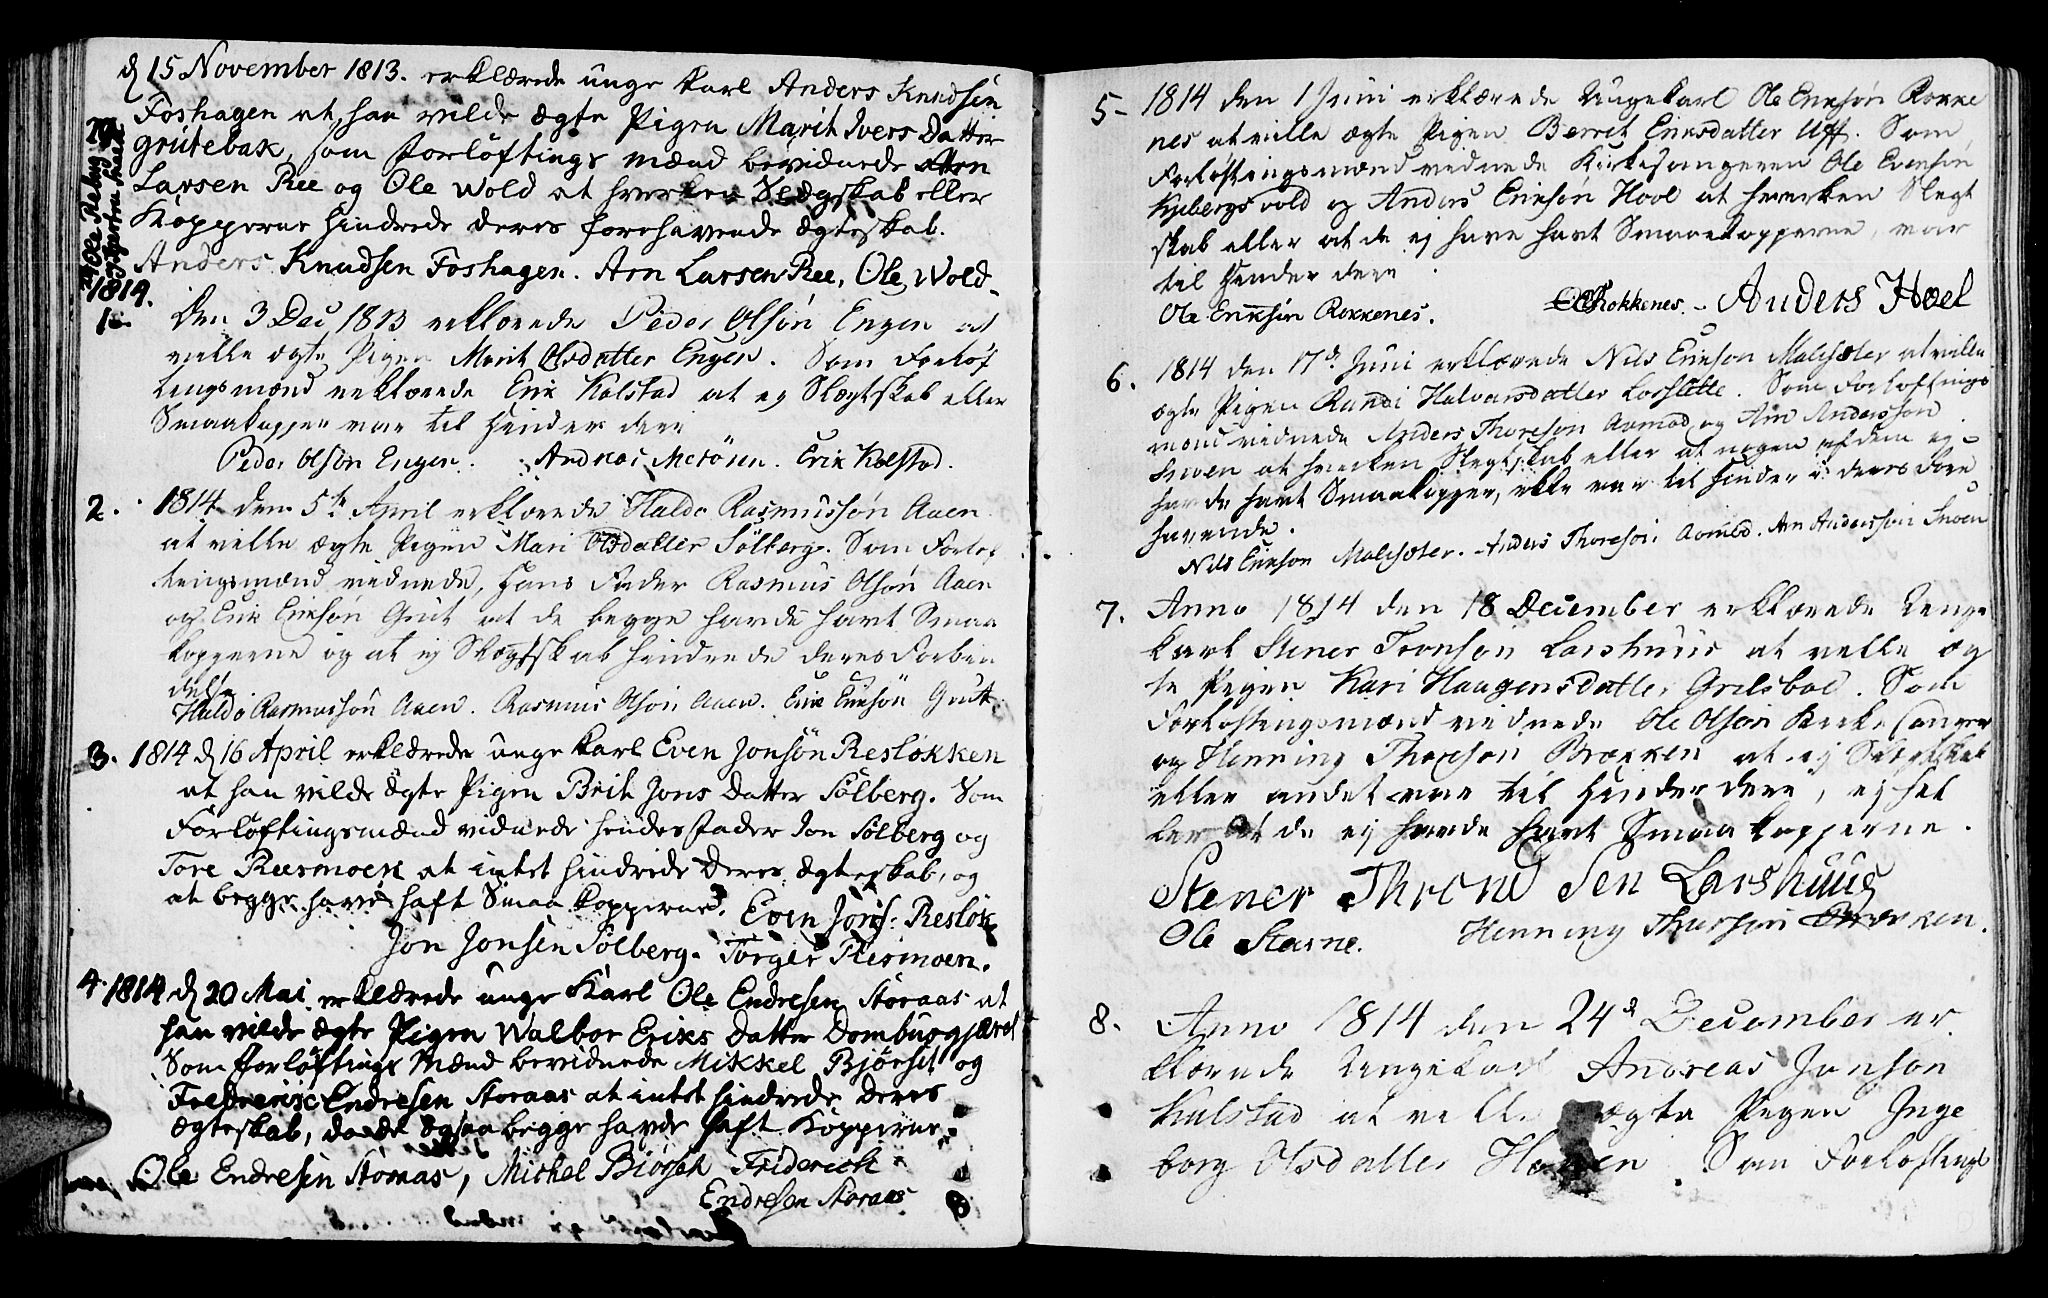 d 15 November 1813. erklærede unge karl Anders Knudsen
Foshagen at han vilde ægte Pigen Marit Ivers Datter
Grütebak, som forlöftings mænd bevidnede Arn
Larsen Ree og Ole Wold at hverken Slægskab eller
Kopperne hindrede deres forehavende ægteskab.
Anders Knudsen Foshagen. Arn Larsen Ree, Ole Wold.
1814.
1. Den 3 Dec 1813 erklærede Peder Olsøn Engen at
ville ægte Pigen Marit Olsdatter Engen. Som Forløf
tingsmænd erklærede Erik Kolstad at ej Slægtskab eller
Smaakopper var til Hinder derr
Peder Olsøn Engen. Andreas Metören. Erik Kolstad.
2. 1814 den 5te April erklærede Haldo Rasmussøn Aaen
at ville ægte Pigen Mari Olsdatter Sölberg. Som Forløf
tingsmænd vidnede, Hans Fader Rasmus Olsøn Aaen
og Erik Eriksøn Grüt at de begge havde havt Smaa
kopperne og at ej Slægtskab hindrede deres Forbin
delse
Haldo Rasmussøn Aaen. Rasmus Olsøn Aaen. Erik Eriksøn Grütt
3. 1814 d 16 April erklærede unge karl Even Jonsön Reslökken
at han vilde ægte Pigen Brit Jons Datter Sölberg. Som
Forlöftingsmænd vidnede hendes fader Jon Sölberg og
Tore Riesmoen at intet hindrede Deres ægteskab, og
at begge havde haft Smaa kopperne. Even Jons: Reslök
Jon Jonsen Sölberg. Torger Riesmoen.
4. 1814 d 20 Mai erklærede unge Karl Ole Endresen Storaas at
han vilde ægte Pigen Walbor Eriks Datter Dombusgjærdet
Som forlöftings Mænd bevidnede Mikkel Bjørset og
Frederik Endresen Storaas at intet hindrede Deres
ægteskab, da de ogsaa begge havde haft Kopperne
Ole Endresen Storaas, Michel Biörset Friderich
Endresen Storaas
5- 1814 den 1 Juni erklærede Ungekarl Ole Eriksøn Rokke
nes at ville ægte Pigen Berret Eriksdatter Uff. Som
Forløftingsmænd vidnede Kirkesangeren Ole Evensøn
Kjebergsvold og Anders Eriksøn Hoel at hverken Slegt
skab eller at de ej have havt Smaaekopperne, var
til Hinder derr
Ole Eriksøn Rokkenes. OE Rokkenes. - Anders Hoel
6. 1814 den 17d. Juni erklærede Nils Erikson Malisæter at ville
ægte Pigen Randi Halvorsdatter Lorslette. Som Forløftings
mænd vidnede Anders Thoreson Aamod og Arn Andersson
Snoen at hverken Slegtskab eller at nogen af dem ej
havde havt Smaakopper, ikke var til Hinder i deres Fore
havende.
Nils Erikson Malisæter. Anders Thoresøn Aamod. Arn Andersson Snoen
7. Anno 1814 den 18 December erklærede Unge
karl Stener Tronson Larshuus at velle æg
te Pigen Kari Haagensdatter Grilsboe. Som
Forløftingsmænd vidnede Ole Olsøn Kirkesanger
og Henning Thoreson Brækken at ej Slegtskab
eller andet var til Hinder derr, ej hel
ler at de ej havde havt Smaakopperne.
Stener Throndsen Larshüüs
Ole Stavne. Henning Thorsson Brækken.
8. Anno 1814 den 24d December er
klærede Ungekarl Andreas Jonson
Kulstad at velle ægte Pigen Inge
borg Olsdatter. Som Forløftings